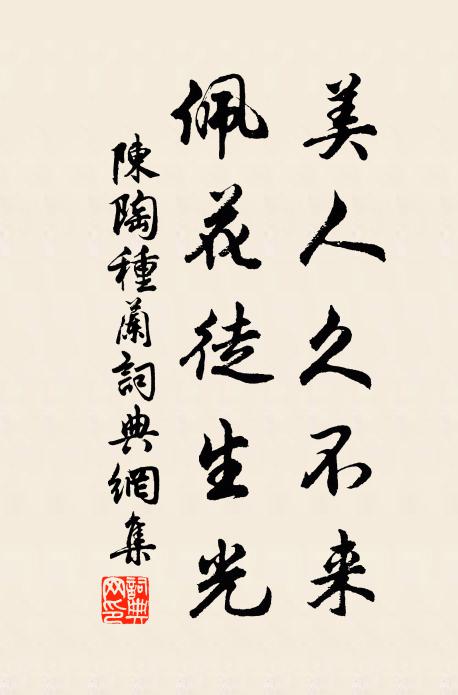 美人久不来
佩花徒生光
陳陶種蘭詞典網集
詞典网印